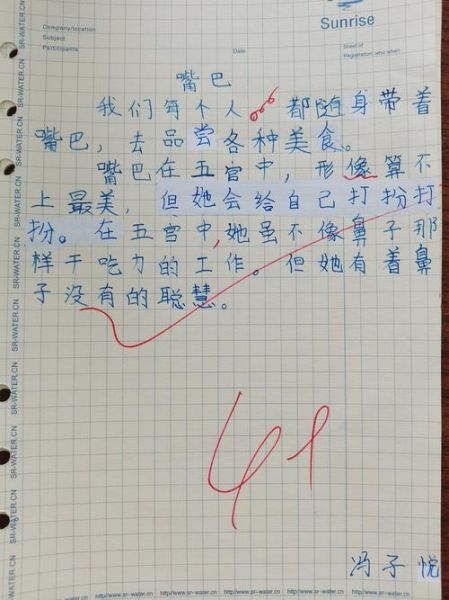 Sunrise
Company/location
Subject
Participants
Date
Sheet of
Registration, who when
嘴巴
我们每个人都随身带着
嘴巴，去品尝各种美食。
嘴巴在五官中，形像算不
上最美，但她会给自己打扮打
扮。在五官中，她虽不像鼻子那
样干吃力的工作。但她有着鼻
子没有的聪慧。
冯子悦
SR-WATER.CN
SR-WATER.CN
SR-WATER.CN
SR-WATER.CN
SR-WATER.CN
SR-WATER.CN
SR-WATER.CN
http://www.sr-water.cn http://www.sr-water.cn http://www.sr-water.cn http://www.sr-water.cn http://www.sr-water.cn